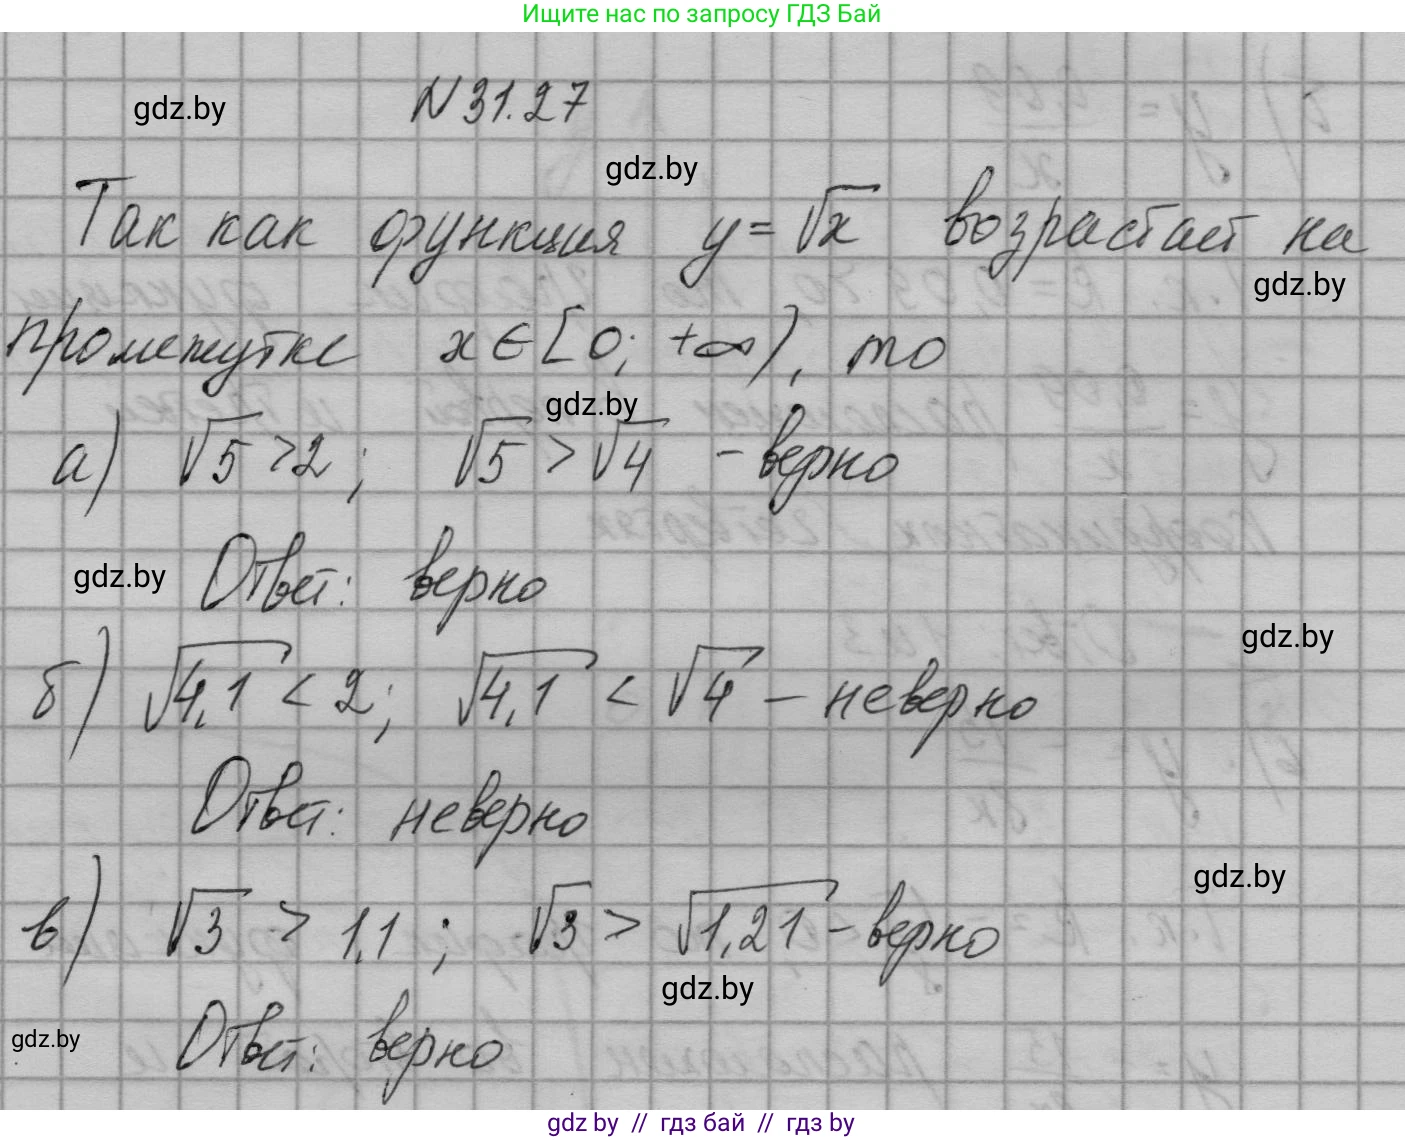 Ищите нас по запросу ГДЗ Бай
N 31.27
gdz.by
gdz.by
Так как функция y = √x возрастает на
gdz.by
промежутке x ∈ [0; +∞), то
gdz.by
а) √5 > 2; √5 > √4 - верно
gdz.by
Ответ: верно
gdz.by
б) √4,1 < 2; √4,1 < √4 - неверно
Ответ: неверно
gdz.by
в) √3 > 1,1; √3 > √1,21 - верно
gdz.by
gdz.by
Ответ: верно
gdz.by // гдз бай // gdz by